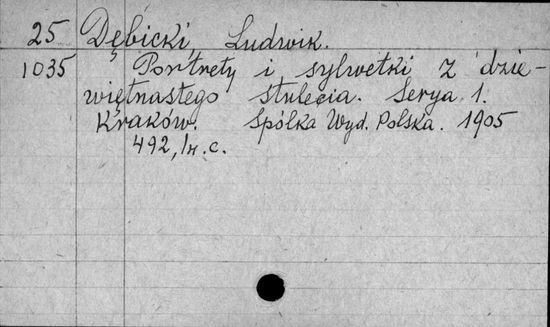 25 Dębicki, Ludwik.
1035 Portrety i sylwetki z dzie-
więtnastego stulecia. Serya 1.
Kraków. Spółka Wyd. Polska. 1905
492, c.